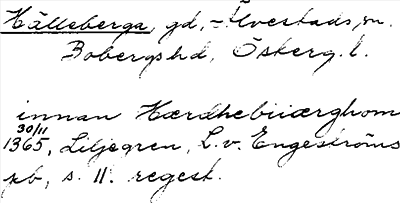 Hälleberga, gd, Älvestads sn.
Bobergs hd, Östergl.
innan Hærdhebiiærghom
30/11
1365, Liljegren, L. v. Engeströms
pb, s. 11. regest.